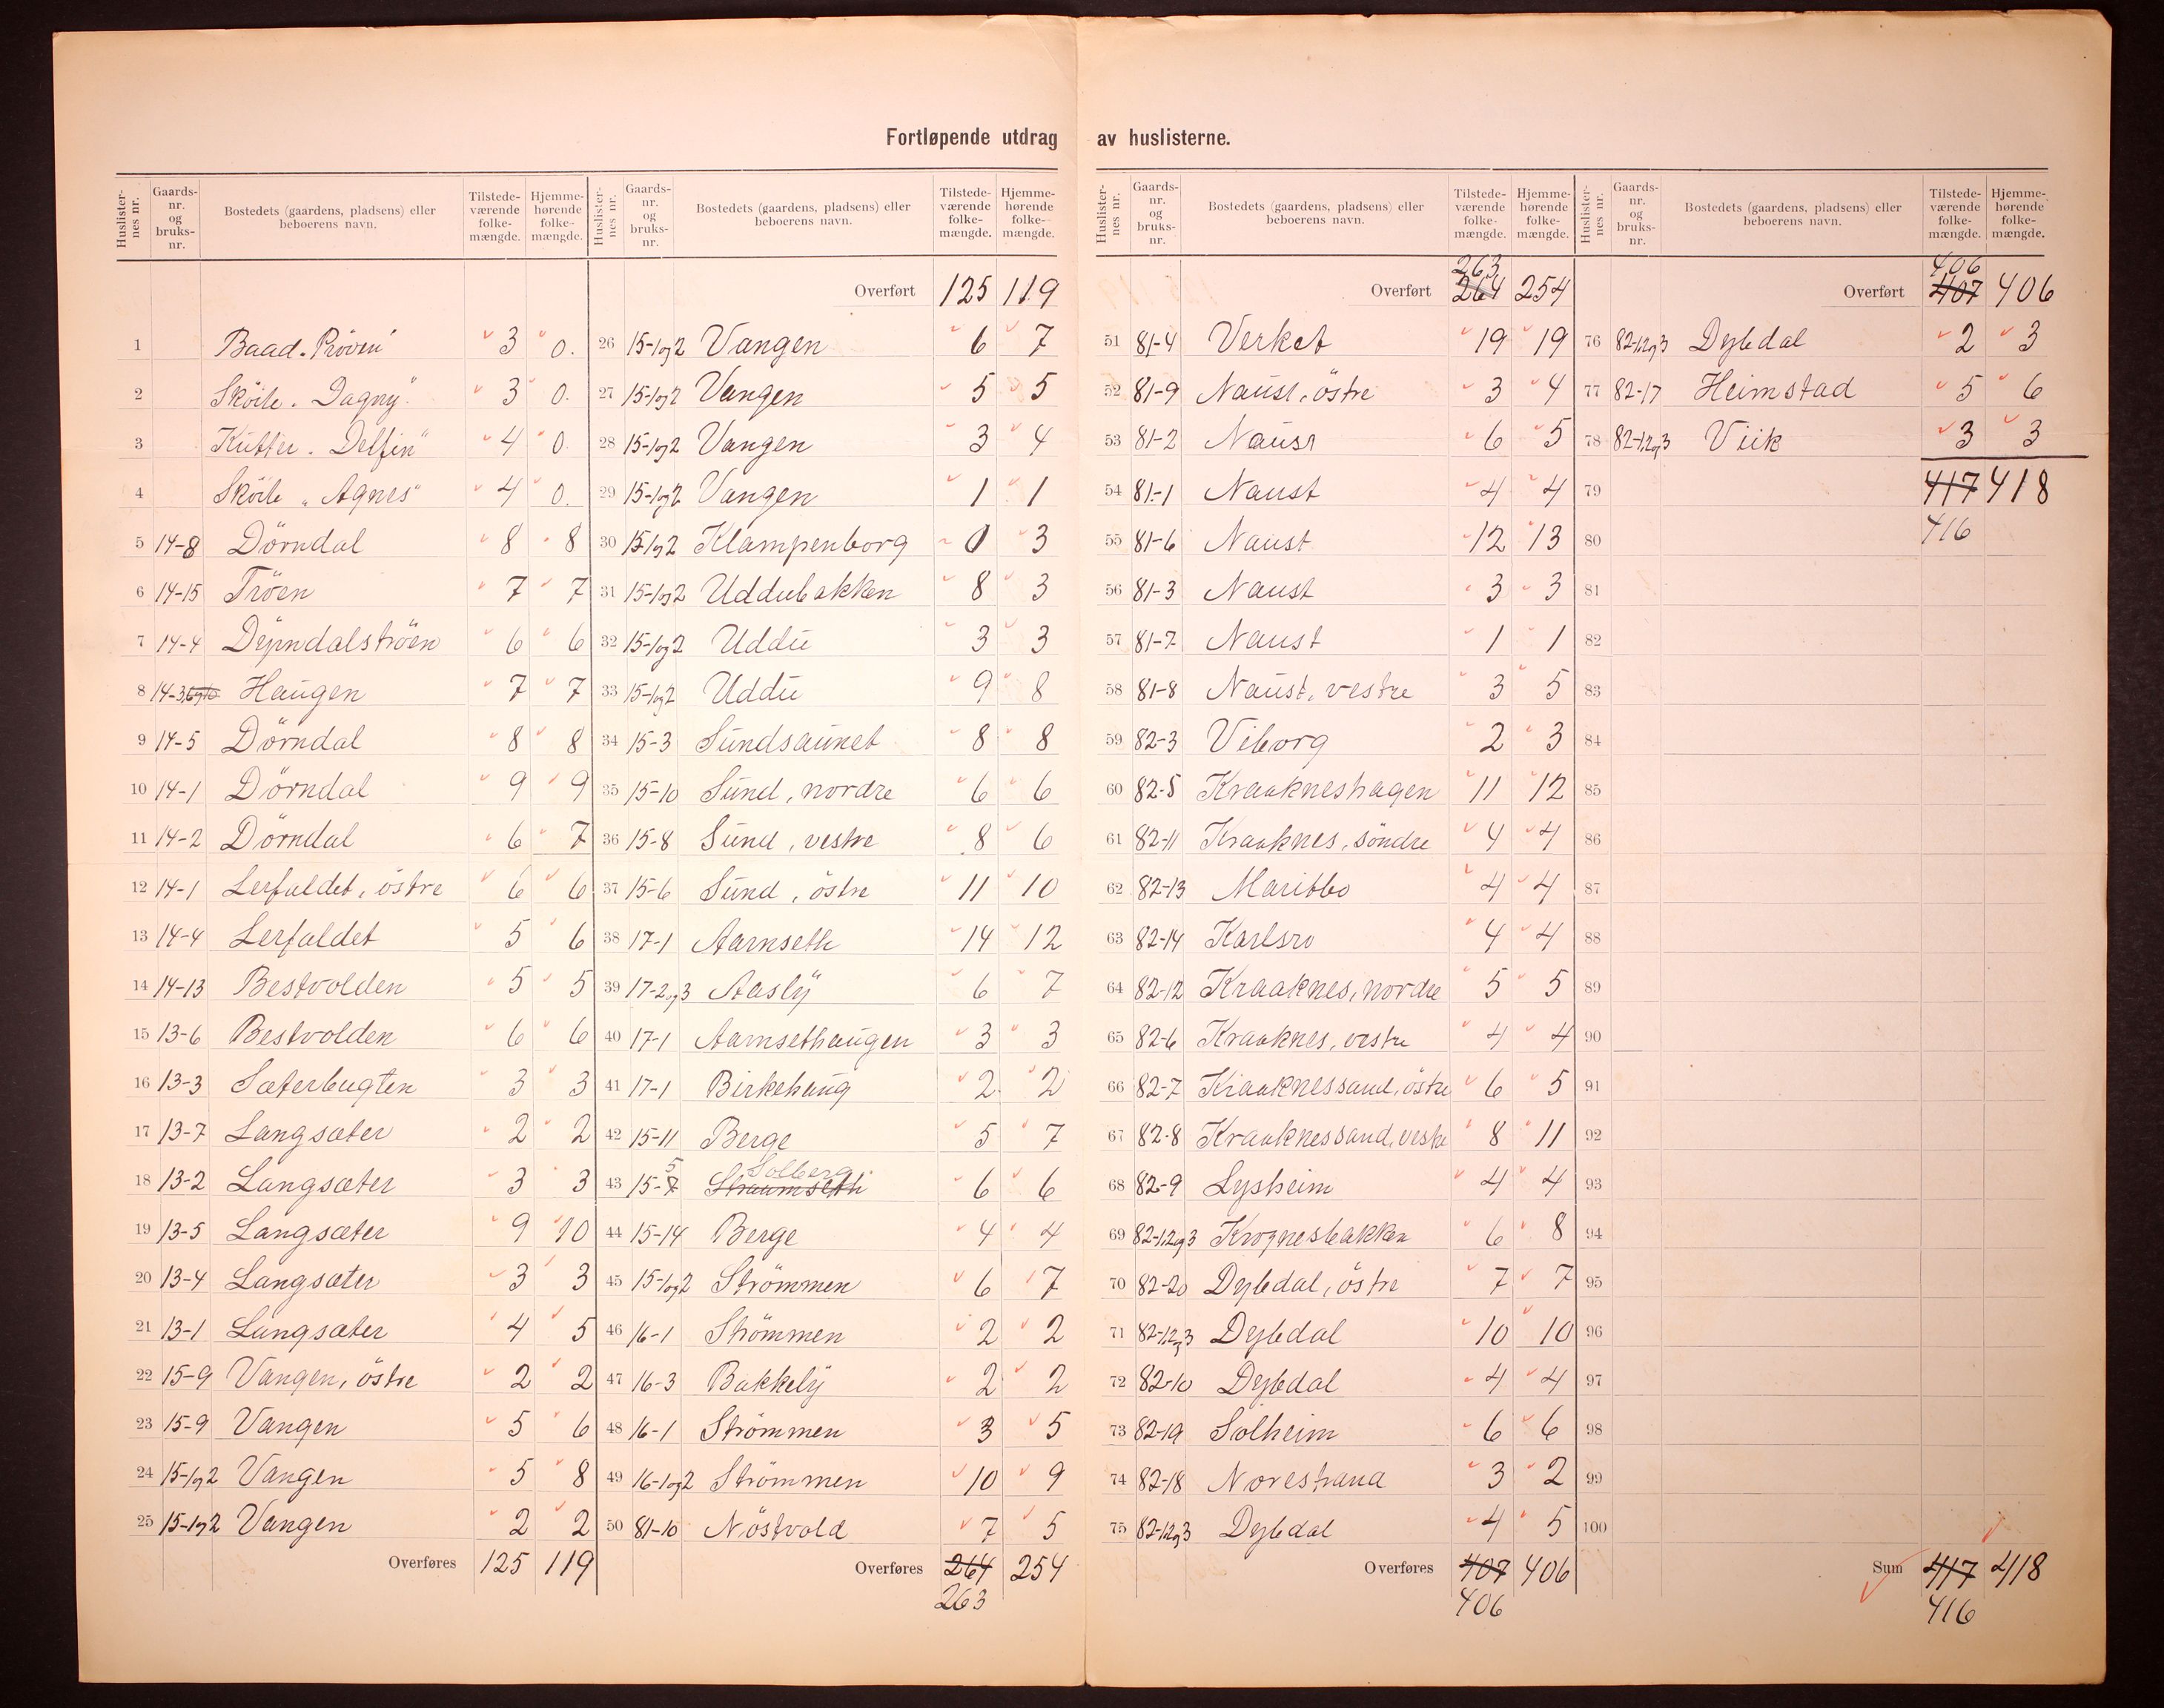 Fortløpende utdrag av huslisterne.
Huslisternes nr. Gaardsnr. og bruksnr. Bostedets (gaardens, pladsens) eller beboerens navn. Tilstedeværende folkemængde. Hjemmehørende folkemængde.
1 Baad. Pröven" 3 0.
2 Sköite. Dagny" 3 0.
3 Kutter. Delfin" 4 0.
4 Sköite „Agnes" 4 0.
5 14-8 Dörndal 8 8
6 14-15 Tröen 7 7
7 14-4 Dörndalströen 6 6
8 14-3, 6 og 10 Haugen 7 7
9 14-5 Dörndal 8 8
10 14-1 Dörndal 9 9
11 14-2 Dörndal 6 7
12 14-1 Lerfaldet, östre 6 6
13 14-4 Lerfaldet 5 6
14 14-13 Bestvolden 5 5
15 13-6 Bestvolden 6 6
16 13-3 Sæterbugten 3 3
17 13-7 Langsæter 2 2
18 13-2 Langsæter 3 3
19 13-5 Langsæter 9 10
20 13-4 Langsæter 3 3
21 13-1 Langsæter 4 5
22 15-9 Vangen, östre 2 2
23 15-9 Vangen 5 6
24 15-1og2 Vangen 5 8
25 15-1og2 Vangen 2 2
Overføres 125 119
Huslisternes nr. Gaardsnr. og bruksnr. Bostedets (gaardens, pladsens) eller beboerens navn. Tilstedeværende folkemængde. Hjemmehørende folkemængde.
Overført 125 119
26 15-1og2 Vangen 6 7
27 15-1og2 Vangen 5 5
28 15-1og2 Vangen 3 4
29 15-1og2 Vangen 1 1
30 15-1og2 Klampenborg 0 3
31 15-1og2 Uddubakken 8 3
32 15-1og2 Uddu 3 3
33 15-1og2 Uddu 9 8
34 15-3 Sundsaunet 8 8
35 15-10 Sund, nordre 6 6
36 15-8 Sund, vestre 8 6
37 15-6 Sund, östre 11 10
38 17-1 Aarnseth 14 12
39 17-2og3 Aasly 6 7
40 17-1 Aarnsethaugen 3 3
41 17-1 Birkehaug 2 2
42 15-11 Berge 5 7
5 Solberg
43 15-7 Straumseth 6 6
44 15-14 Berge 4 4
45 15-1og2 Strömmen 6 7
46 16-1 Strömmen 2 2
47 16-3 Bakkely 2 2
48 16-1 Strömmen 3 5
49 16-1og2 Strömmen 10 9
50 81-10 Nöstvold 7 5
Overføres 264 254
263
Huslisternes nr. Gaardsnr. og bruksnr. Bostedets (gaardens, pladsens) eller beboerens navn. Tilstedeværende folkemængde. Hjemmehørende folkemængde.
263
Overført 264 254
51 81-4 Verket 19 19
52 81-9 Naust, östre 3 4
53 81-2 Naust 6 5
54 81-1 Naust 4 4
55 81-6 Naust 12 13
56 81-3 Naust 3 3
57 81-7 Naust 1 1
58 81-8 Naust, vestre 3 5
59 82-3 Viborg 2 3
60 82-5 Kraakneshagen 11 12
61 82-11 Kraaknes, söndre 4 4
62 82-13 Maribbo 4 4
63 82-14 Karlsro 4 4
64 82-12 Kraaknes, nordre 5 5
65 82-6 Kraaknes, vestre 4 4
66 82-7 Kraaknessand, östre 6 5
67 82-8 Kraaknessand, vestre 8 11
68 82-9 Lysheim 4 4
69 82-1,2og3 Krognesbakken 6 8
70 82-20 Dybdal, östre 7 7
71 82-1,2og3 Dybdal 10 10
72 82-10 Dybdal 4 4
73 82-19 Solheim 6 6
74 82-18 Norestrand 3 2
75 82-1,2og3 Dybdal 4 5
Overføres 407 406
406
Huslisternes nr. Gaardsnr. og bruksnr. Bostedets (gaardens, pladsens) eller beboerens navn. Tilstedeværende folkemængde. Hjemmehørende folkemængde.
406
Overført 407 406
76 82-1,2og3 Dybdal 2 3
77 82-17 Heimstad 5 6
78 82-1,2og3 Viik 3 3
79 417 418
80 416
81
82
83
84
85
86
87
88
89
90
91
92
93
94
95
96
97
98
99
100
Sum 417 418
416